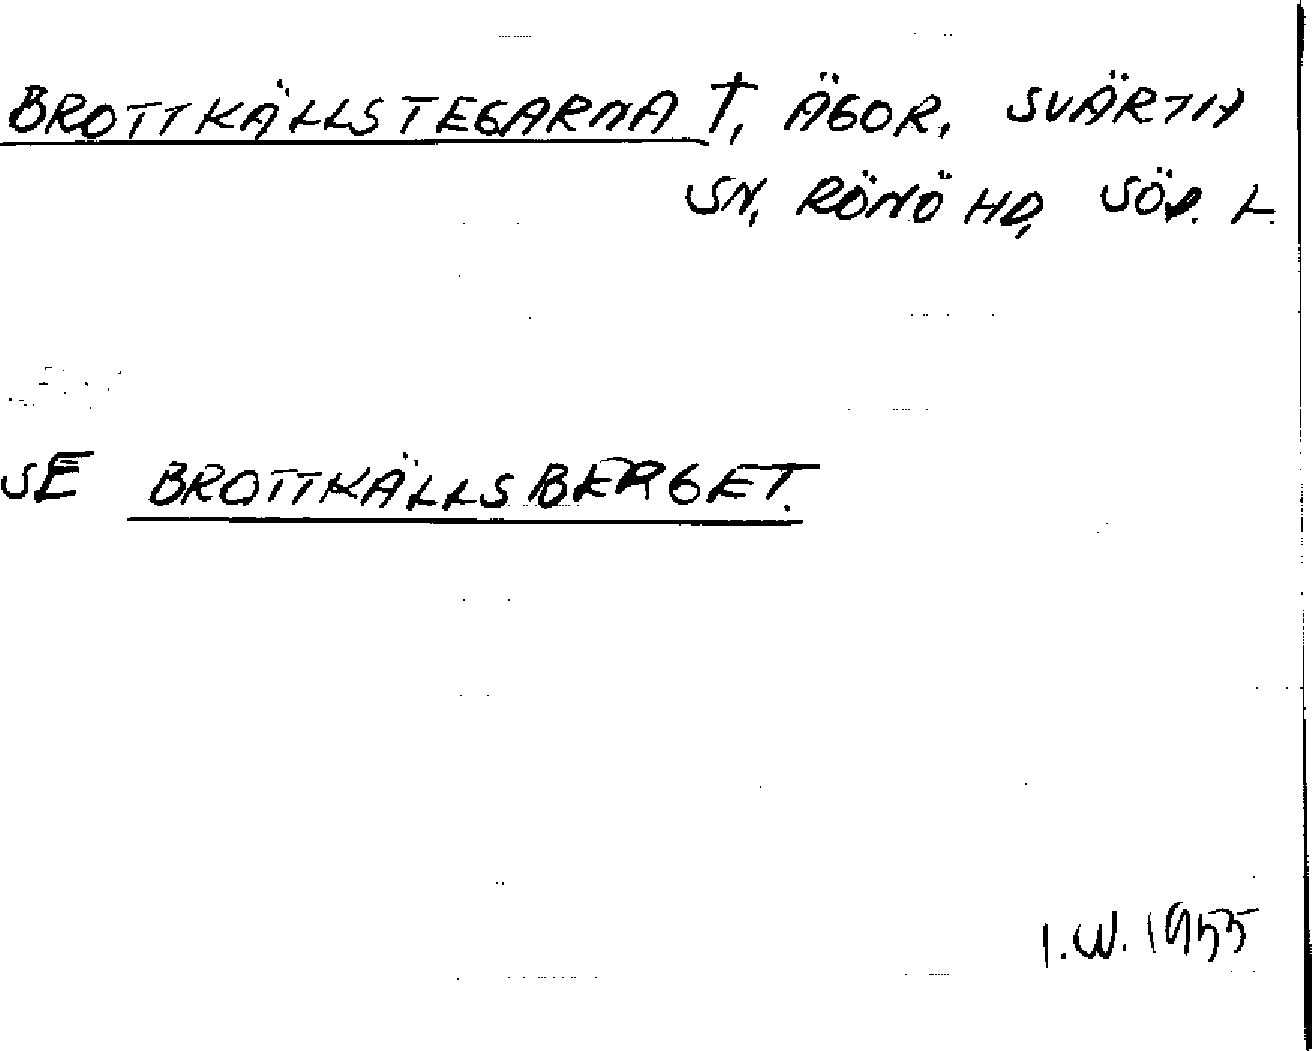 BROTTKÄLLSTEGARNA †, ÄGOR, SVÄRTA
SN, RÖNÖ HD, SÖD. L.
SE BROTTKÄLLSBERGET.
I.W. 1955